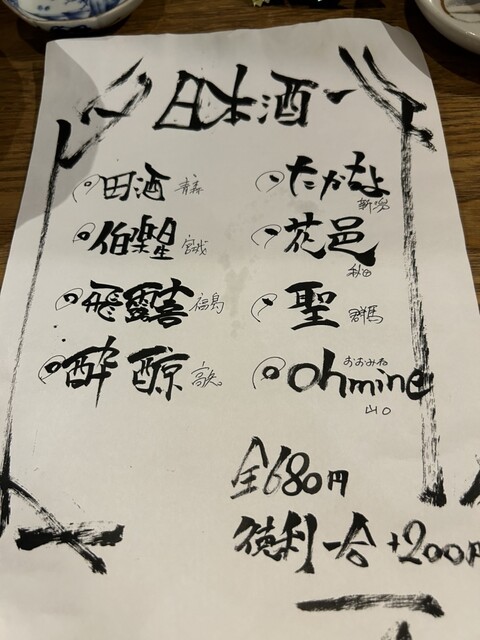 日本酒
田酒 青森
伯楽星 宮城
飛露喜 福島
酔鯨 高知
たかちよ 新潟
花邑 秋田
聖 群馬
おおみね
ohmine
山口
全680円
徳利一合+200円